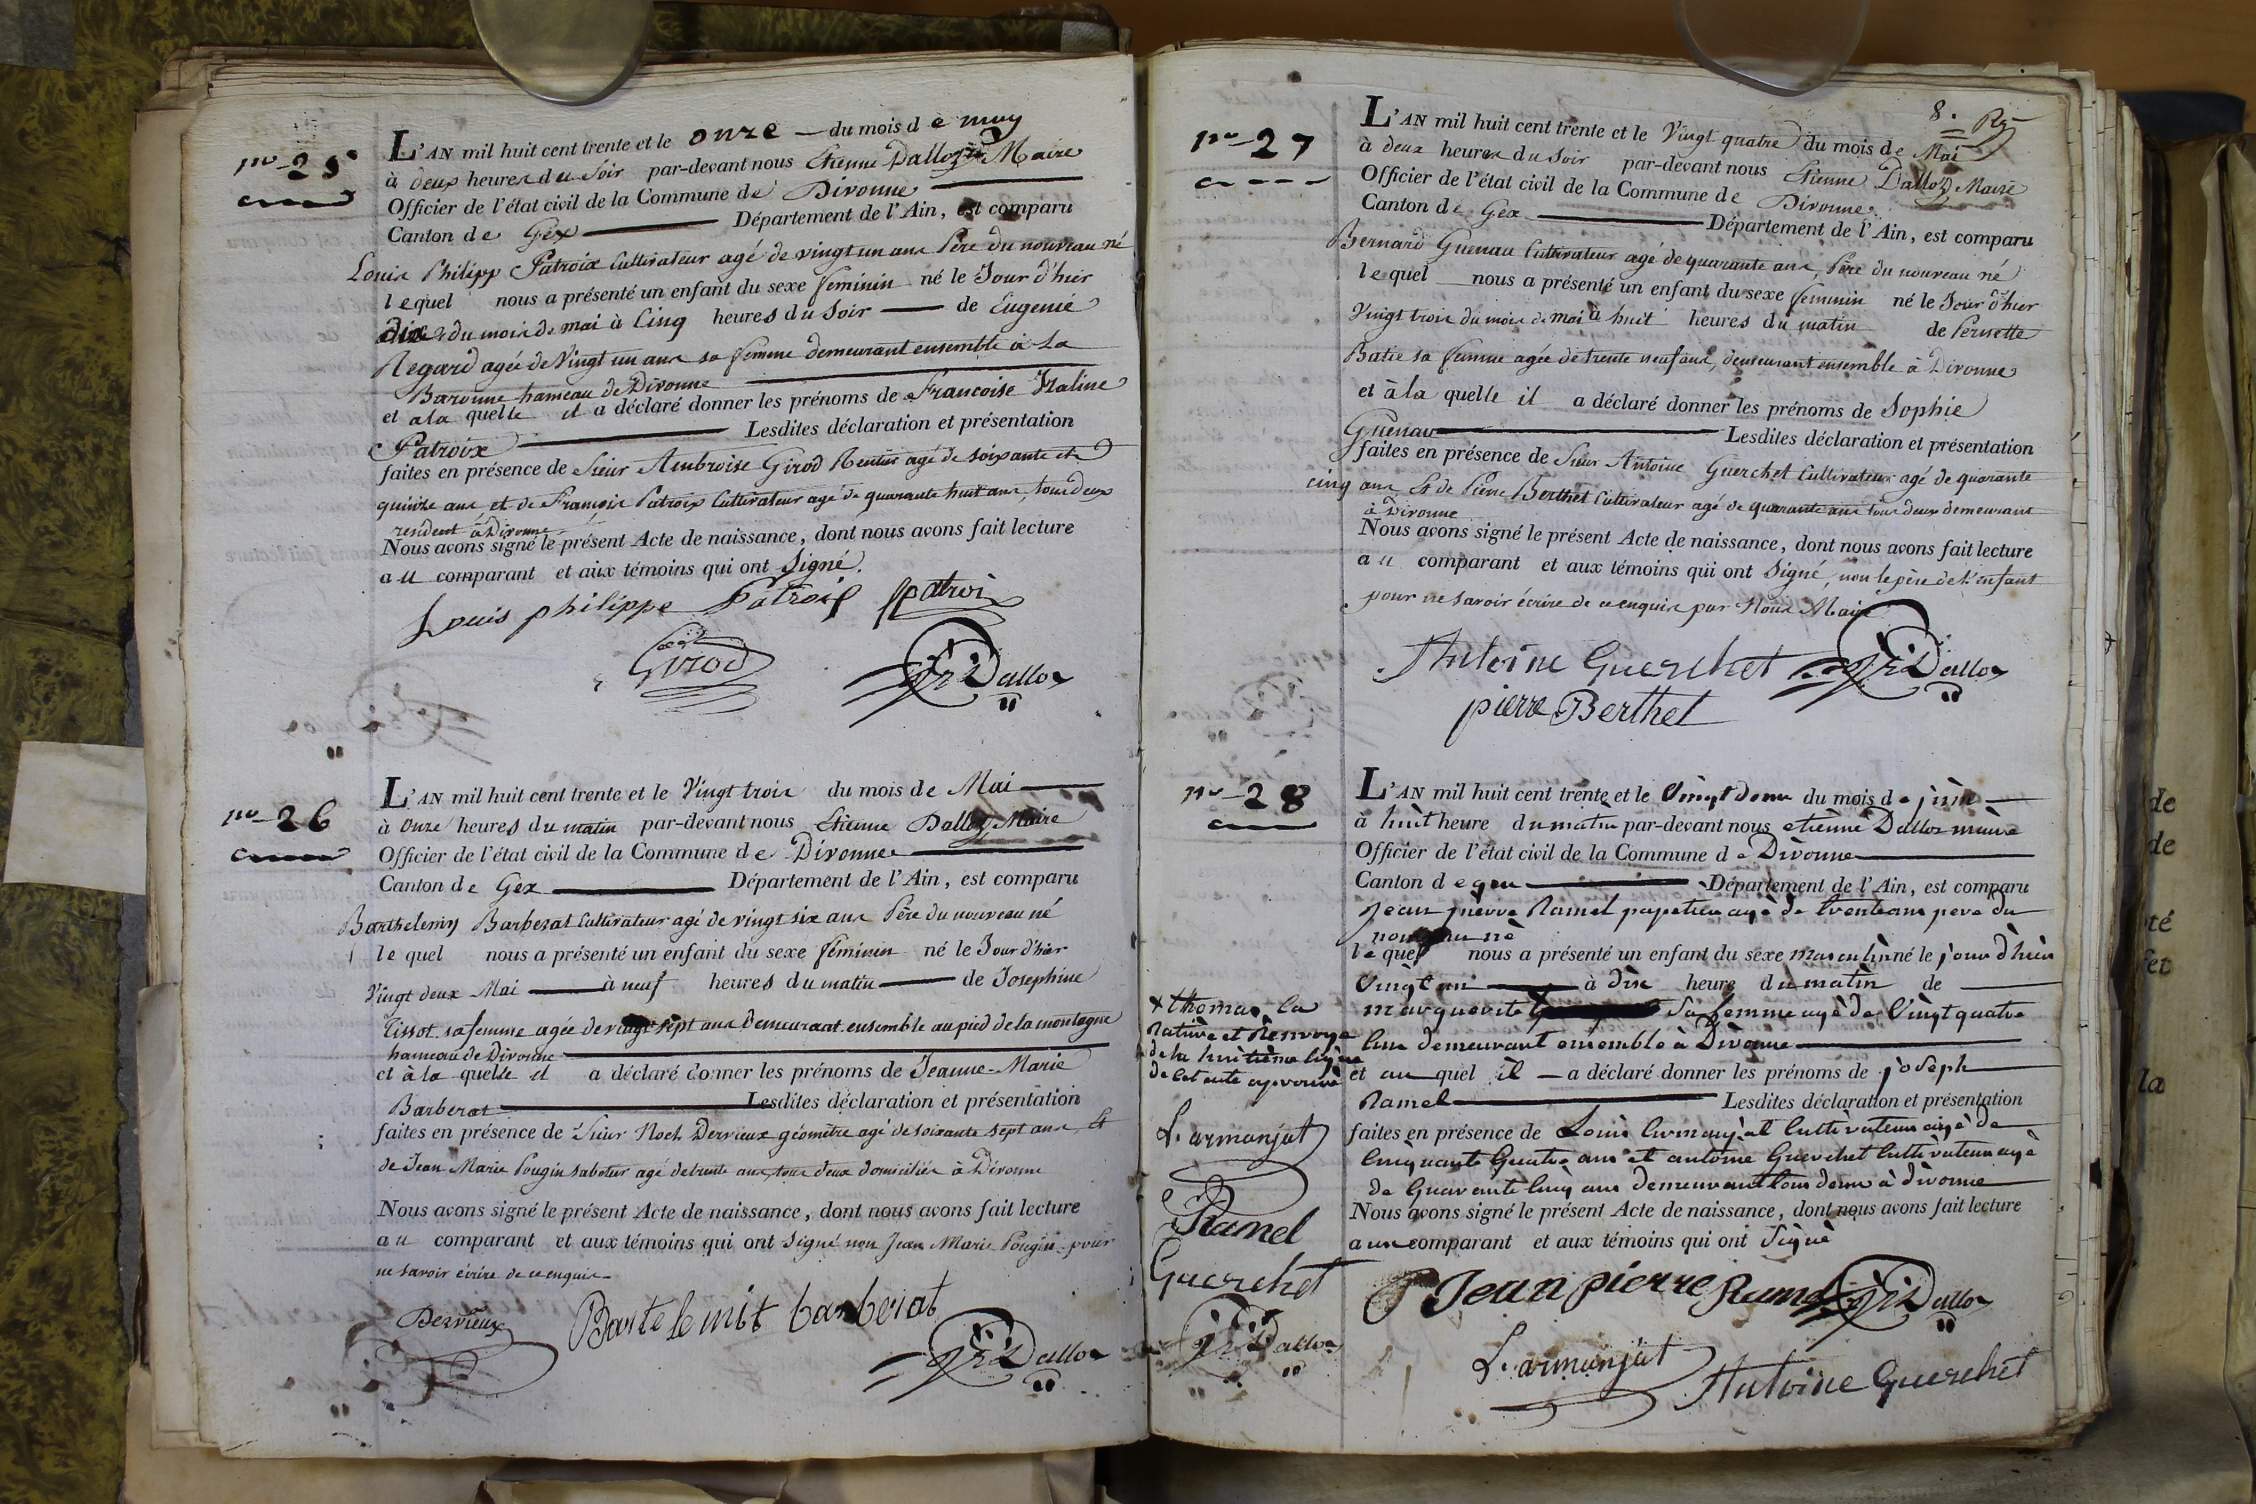 no 25
L'AN mil huit cent trente et le onze du mois de may
à deux heures du soir par-devant nous Etienne Dalloz Maire
Officier de l'état civil de la Commune de Divonne
Canton de Gex Département de l'Ain, est comparu
Louis Philipp Patroix Cultivateur agé de vingt un ans Père du nouveau né
lequel nous a présenté un enfant du sexe feminin né le Jour d'hier
dix du mois de mai à Cinq heures du soir de Eugenie
Regard agée de Vingt un ans sa femme demeurant ensemble à La
Baronne hameau de Divonne
et a la quelle il a déclaré donner les prénoms de Francoise Italine
Patroix Lesdites déclaration et présentation
faites en présence de Sieur Ambroise Girod Rentier agé de soixante et
quinze ans et de François Patroix Cultivateur agé de quarante huit ans, tous deux
residant à Divonne
Nous avons signé le présent Acte de naissance, dont nous avons fait lecture
au comparant et aux témoins qui ont Signé.
Louis philippe Patroix fPatroi
Girod Dalloz
no 26
L'AN mil huit cent trente et le Vingt trois du mois de Mai
à Onze heures du matin par-devant nous Etienne Dalloz Maire
Officier de l'état civil de la Commune de Divonne
Canton de Gex Département de l'Ain, est comparu
Barthelemy Barberat Cultivateur agé de vingt six ans Père du nouveau né
lequel nous a présenté un enfant du sexe feminin né le Jour d'hier
Vingt deux Mai à neuf heures du matin de Josephine
Tissot sa femme agée de vingt sept ans Demeurant ensemble au pied de la montagne
hameau de Divonne
et à la quelle il a déclaré donner les prénoms de Jeanne-Marie
Barberat Lesdites déclaration et présentation
faites en présence de Sieur Noel Dervieux géomètre agé de soixante sept ans et
de Jean Marie Pougin sabotier agé de trente ans, tous deux domiciliés à Divonne
Nous avons signé le présent Acte de naissance, dont nous avons fait lecture
au comparant et aux témoins qui ont Signé non Jean Marie Pougin pour
ne savoir écrire de ce enquis
Dervieux Bartelemit barberat
Dalloz
8.
no 27
L'AN mil huit cent trente et le Vingt quatre du mois de Mai
à deux heures du soir par-devant nous Etienne Dalloz Maire
Officier de l'état civil de la Commune de Divonne
Canton de Gex Département de l'Ain, est comparu
Bernard Guenau Cultivateur agé de quarante ans, Père du nouveau né
lequel nous a présenté un enfant du sexe feminin né le Jour d'hier
Vingt trois du mois de mai à huit heures du matin de Pernette
Batie sa femme agée de trente neuf ans, demeurant ensemble à Divonne
et à la quelle il a déclaré donner les prénoms de Sophie
Guenau Lesdites déclaration et présentation
faites en présence de Sieur Antoine Guerchet Cultivateur agé de quarante
cinq ans Et de Pierre Berthet Cultivateur agé de quarante ans tous deux demeurant
à Divonne
Nous avons signé le présent Acte de naissance, dont nous avons fait lecture
au comparant et aux témoins qui ont Signé, non le père de l'enfant
pour ne savoir écrire de ce enquis par Nous Maire
Antoine Guerchet Dalloz
pierre Berthet
no 28
L'AN mil huit cent trente et le Vingt deux du mois de juin
à huit heure du matin par-devant nous etienne Dalloz maire
Officier de l'état civil de la Commune de Divonne
Canton de gex Département de l'Ain, est comparu
Jean pierre Ramel papetier agé de trente ans pere du
nouveau né
lequel nous a présenté un enfant du sexe masculin né le jour d'hier
Vingt un à dix heure du matin de
marguerite sa femme agé de Vingt quatre
ans demeurant ensemble à Divonne
et au quel il a déclaré donner les prénoms de joseph
Ramel Lesdites déclaration et présentation
faites en présence de Louis armanjat Cultivateur agé de
Cinquante Quatre ans et antoine Guerchet Cultivateur agé
de Quarante Cinq ans demeurant tous deux à divonne
Nous avons signé le présent Acte de naissance, dont nous avons fait lecture
aux comparant et aux témoins qui ont Signé
Jean pierre Ramel Dalloz
L. armanjat Antoine Guerchet
x thomas la
Rature et Renvoye
de la huitième ligne
de Cet acte approuvé
L. armanjat
Ramel
Guerchet
Dalloz
de
de
té
et
la